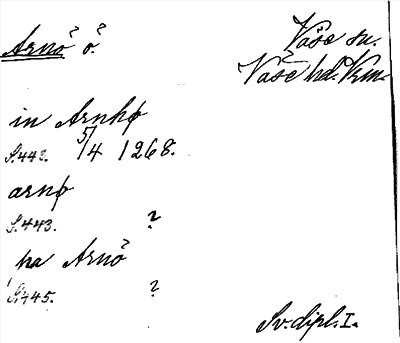 Arnö ö.
Väse sn.
Väse hd. Vrm.
in Arnhø
S. 442. 5/4 1268.
arnø
S. 443. ?
na Arnö
S. 445. ?
Sv. dipl. I.